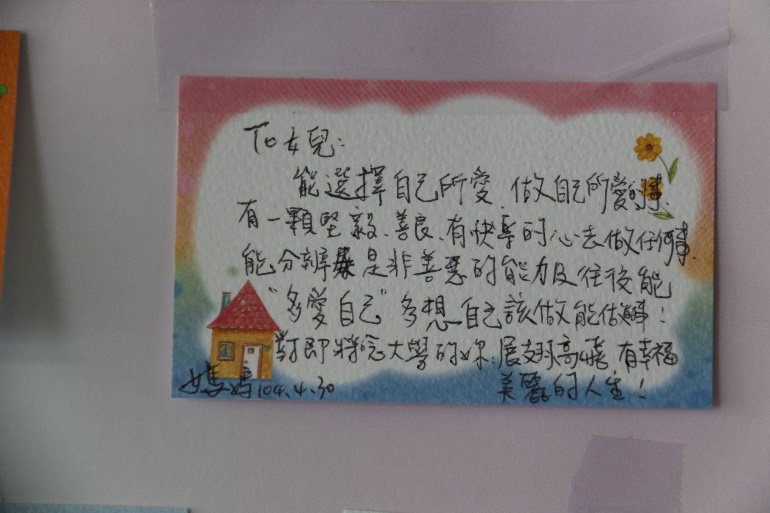 To女兒:
能選擇自己所愛,做自己所愛的事.
有一顆堅毅、善良、有快樂的心去做任何事.
能分辨是非善惡的能力及往後能
"多愛自己"多想自己該做能做的事!
對即將唸大學的妳,展翅高飛,有幸福
美麗的人生!
媽媽104.4.30